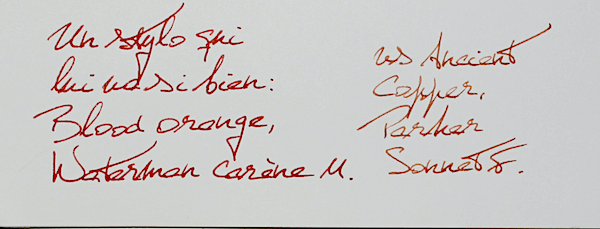 Un stylo qui
lui va si bien:
Blood orange,
Waterman Carène M.
vs Ancient
Copper,
Parker
Sonnet F.